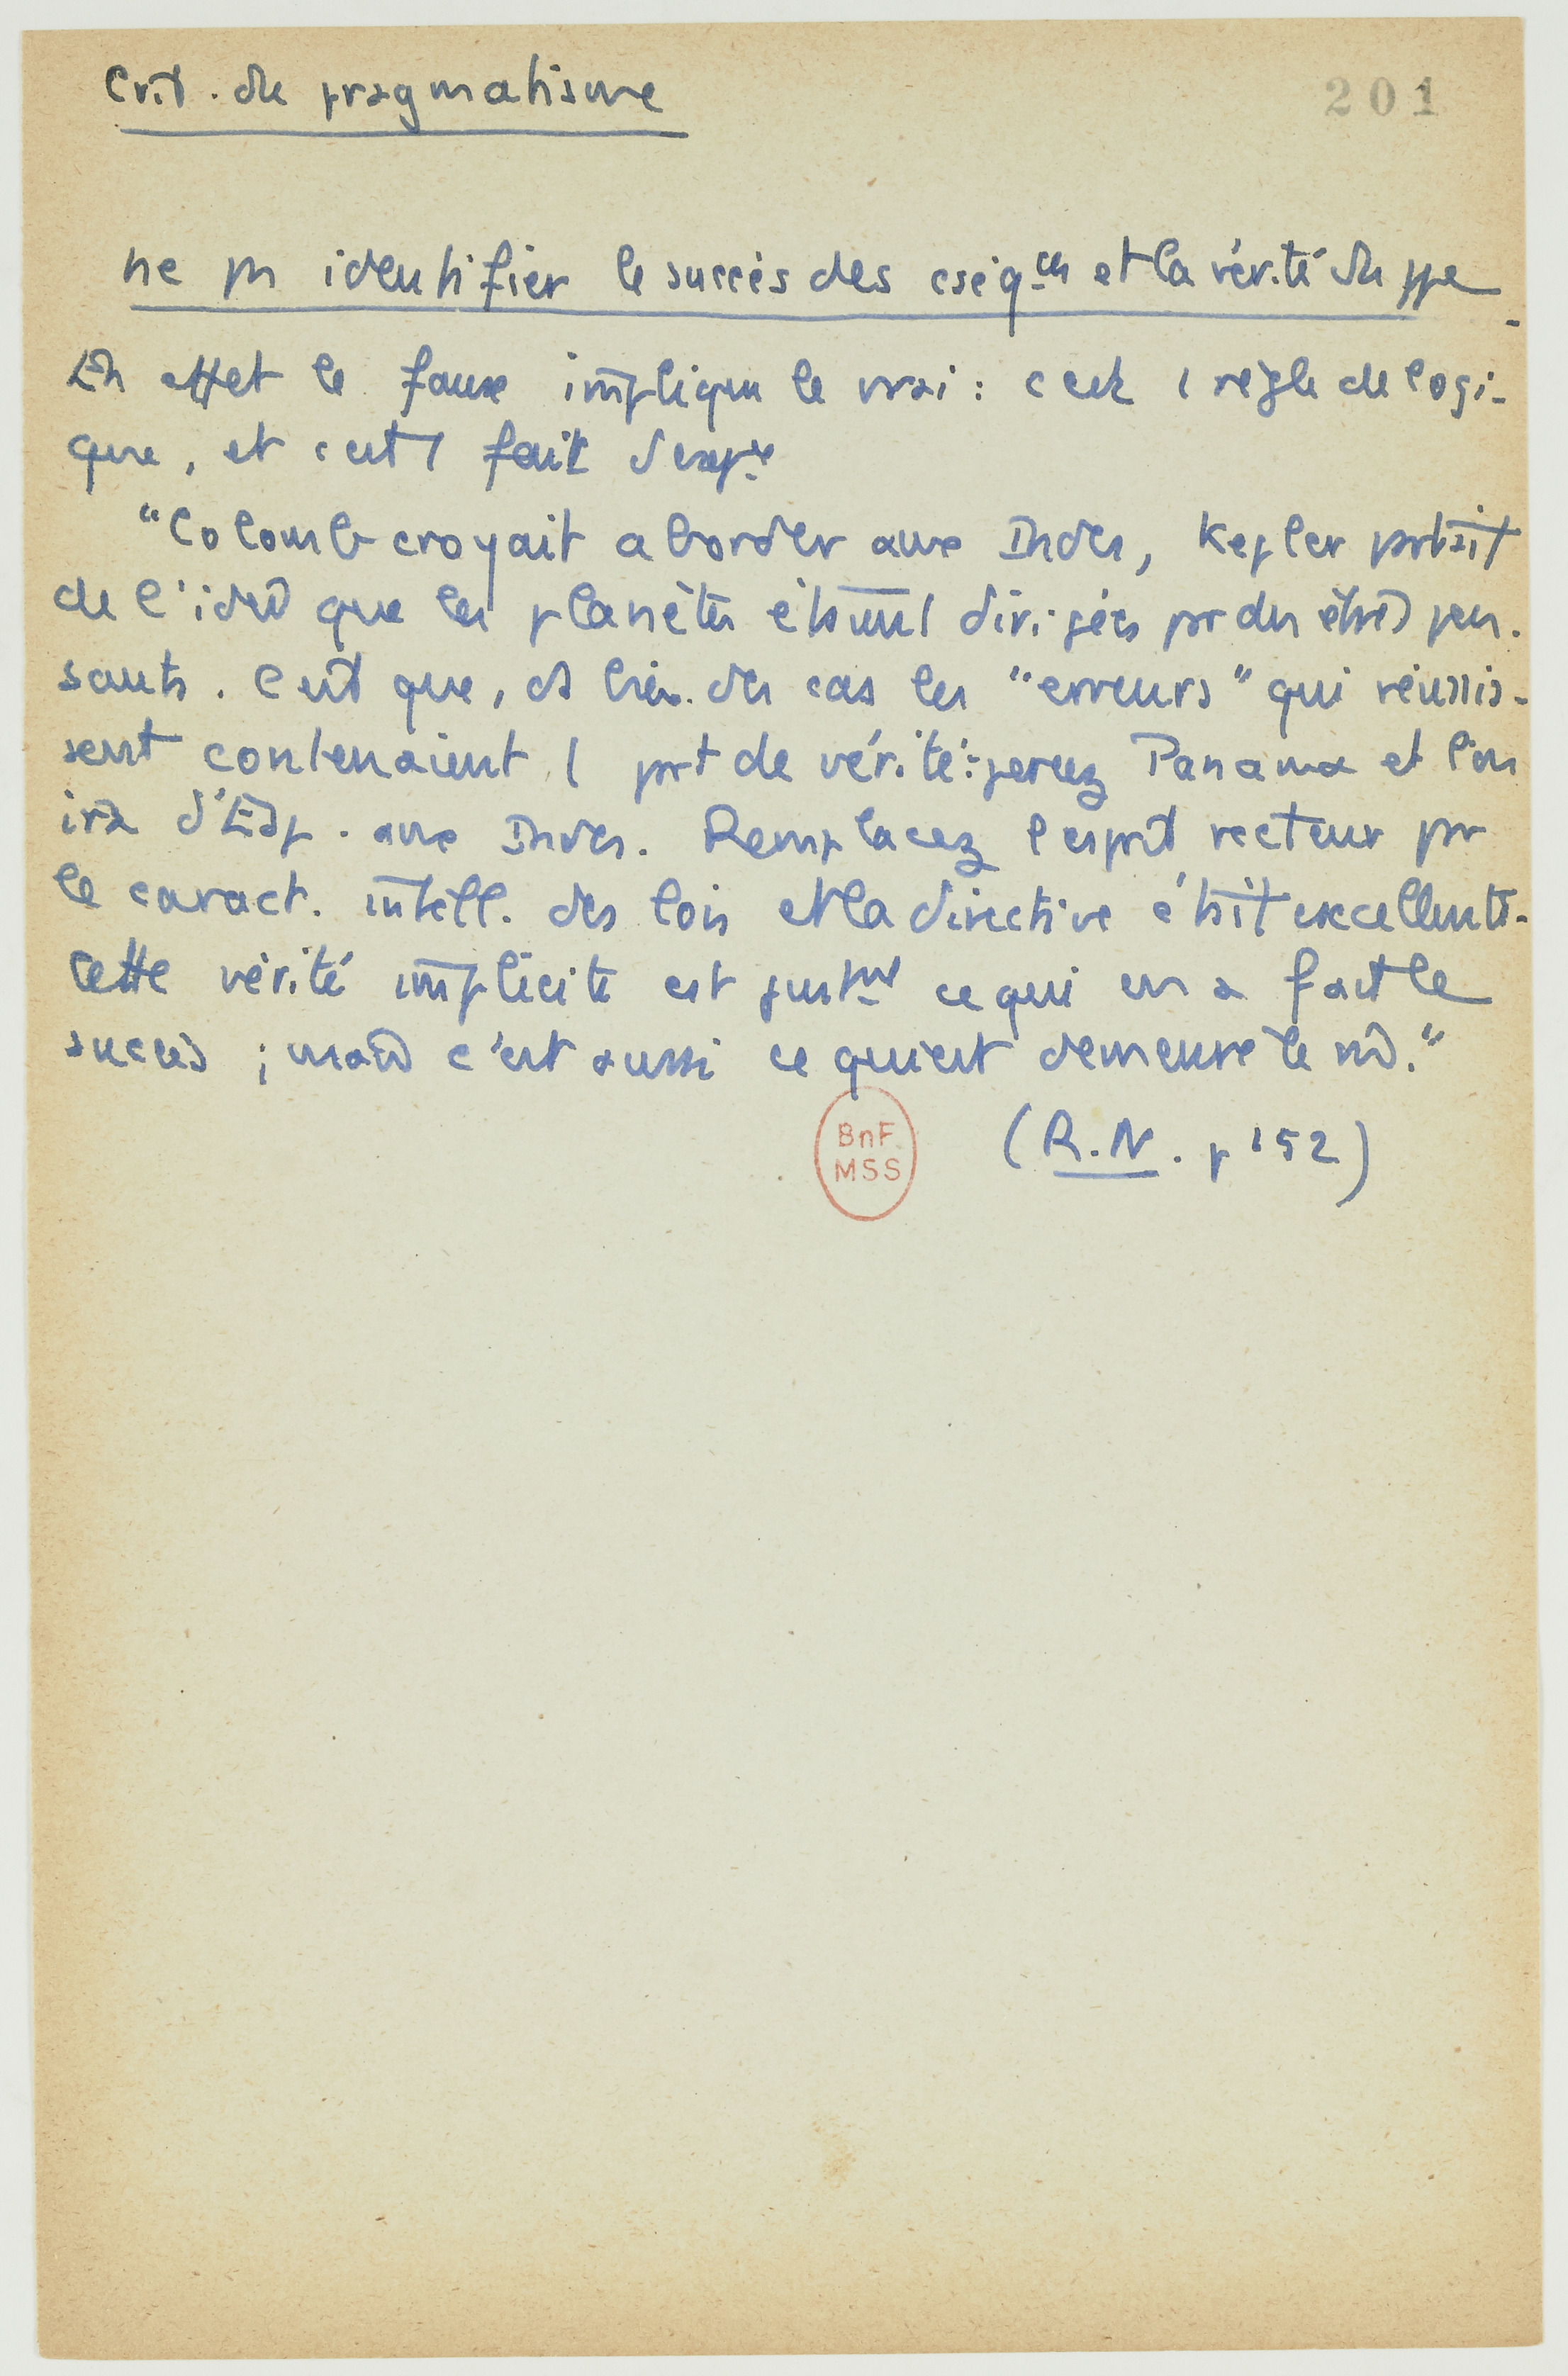 Crit. du pragmatisme
201
ne pas identifier le succès des cséq.ces et la vérité du ppe
En effet le faux implique le vrai : c'est 1 règle de logi-
que, et c'est 1 fait d'exp.ce
"Colomb croyait aborder aux Indes, Kepler prtait
de l'idée que les planètes étaient dirigées pr des êtres pen-
sants. C'est que, ds bien des cas les "erreurs" qui réussis-
sent contenaient 1 prt de vérité : percez Panama et l'on
ira d'Esp. aux Indes. Remplacez l'esprit recteur pr
le caract. intell. des lois et la directive était excellente.
Cette vérité implicite est justmt ce qui en a fait le
succès ; mais c'est aussi ce qui est demeuré le
(R.N. p 152)
BnF
MSS